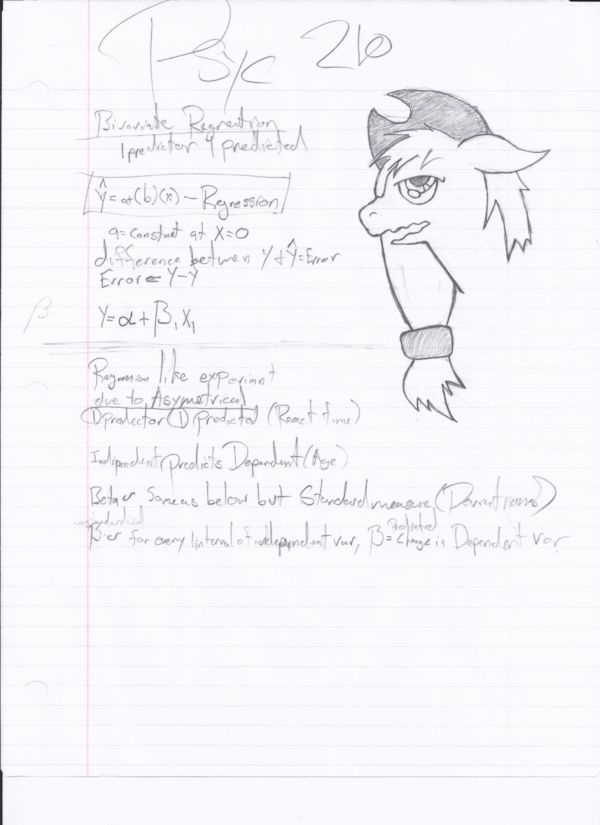 Psyc 210
Bivariate Regression
1 predictor 1 predicted
Ŷ = a+(b)(x) - Regression
a = constant at X=0
difference between Y + Ŷ = Error
Error = Y-Y
β
Y = α + β₁X₁
Regression like experiment
due to Asymetrical
① predictor ① predicted (React time)
Independent predicts Dependent (Age)
same as below but Standard measure
for every 1 interval of independent var, β = Predicted Change in Dependent var